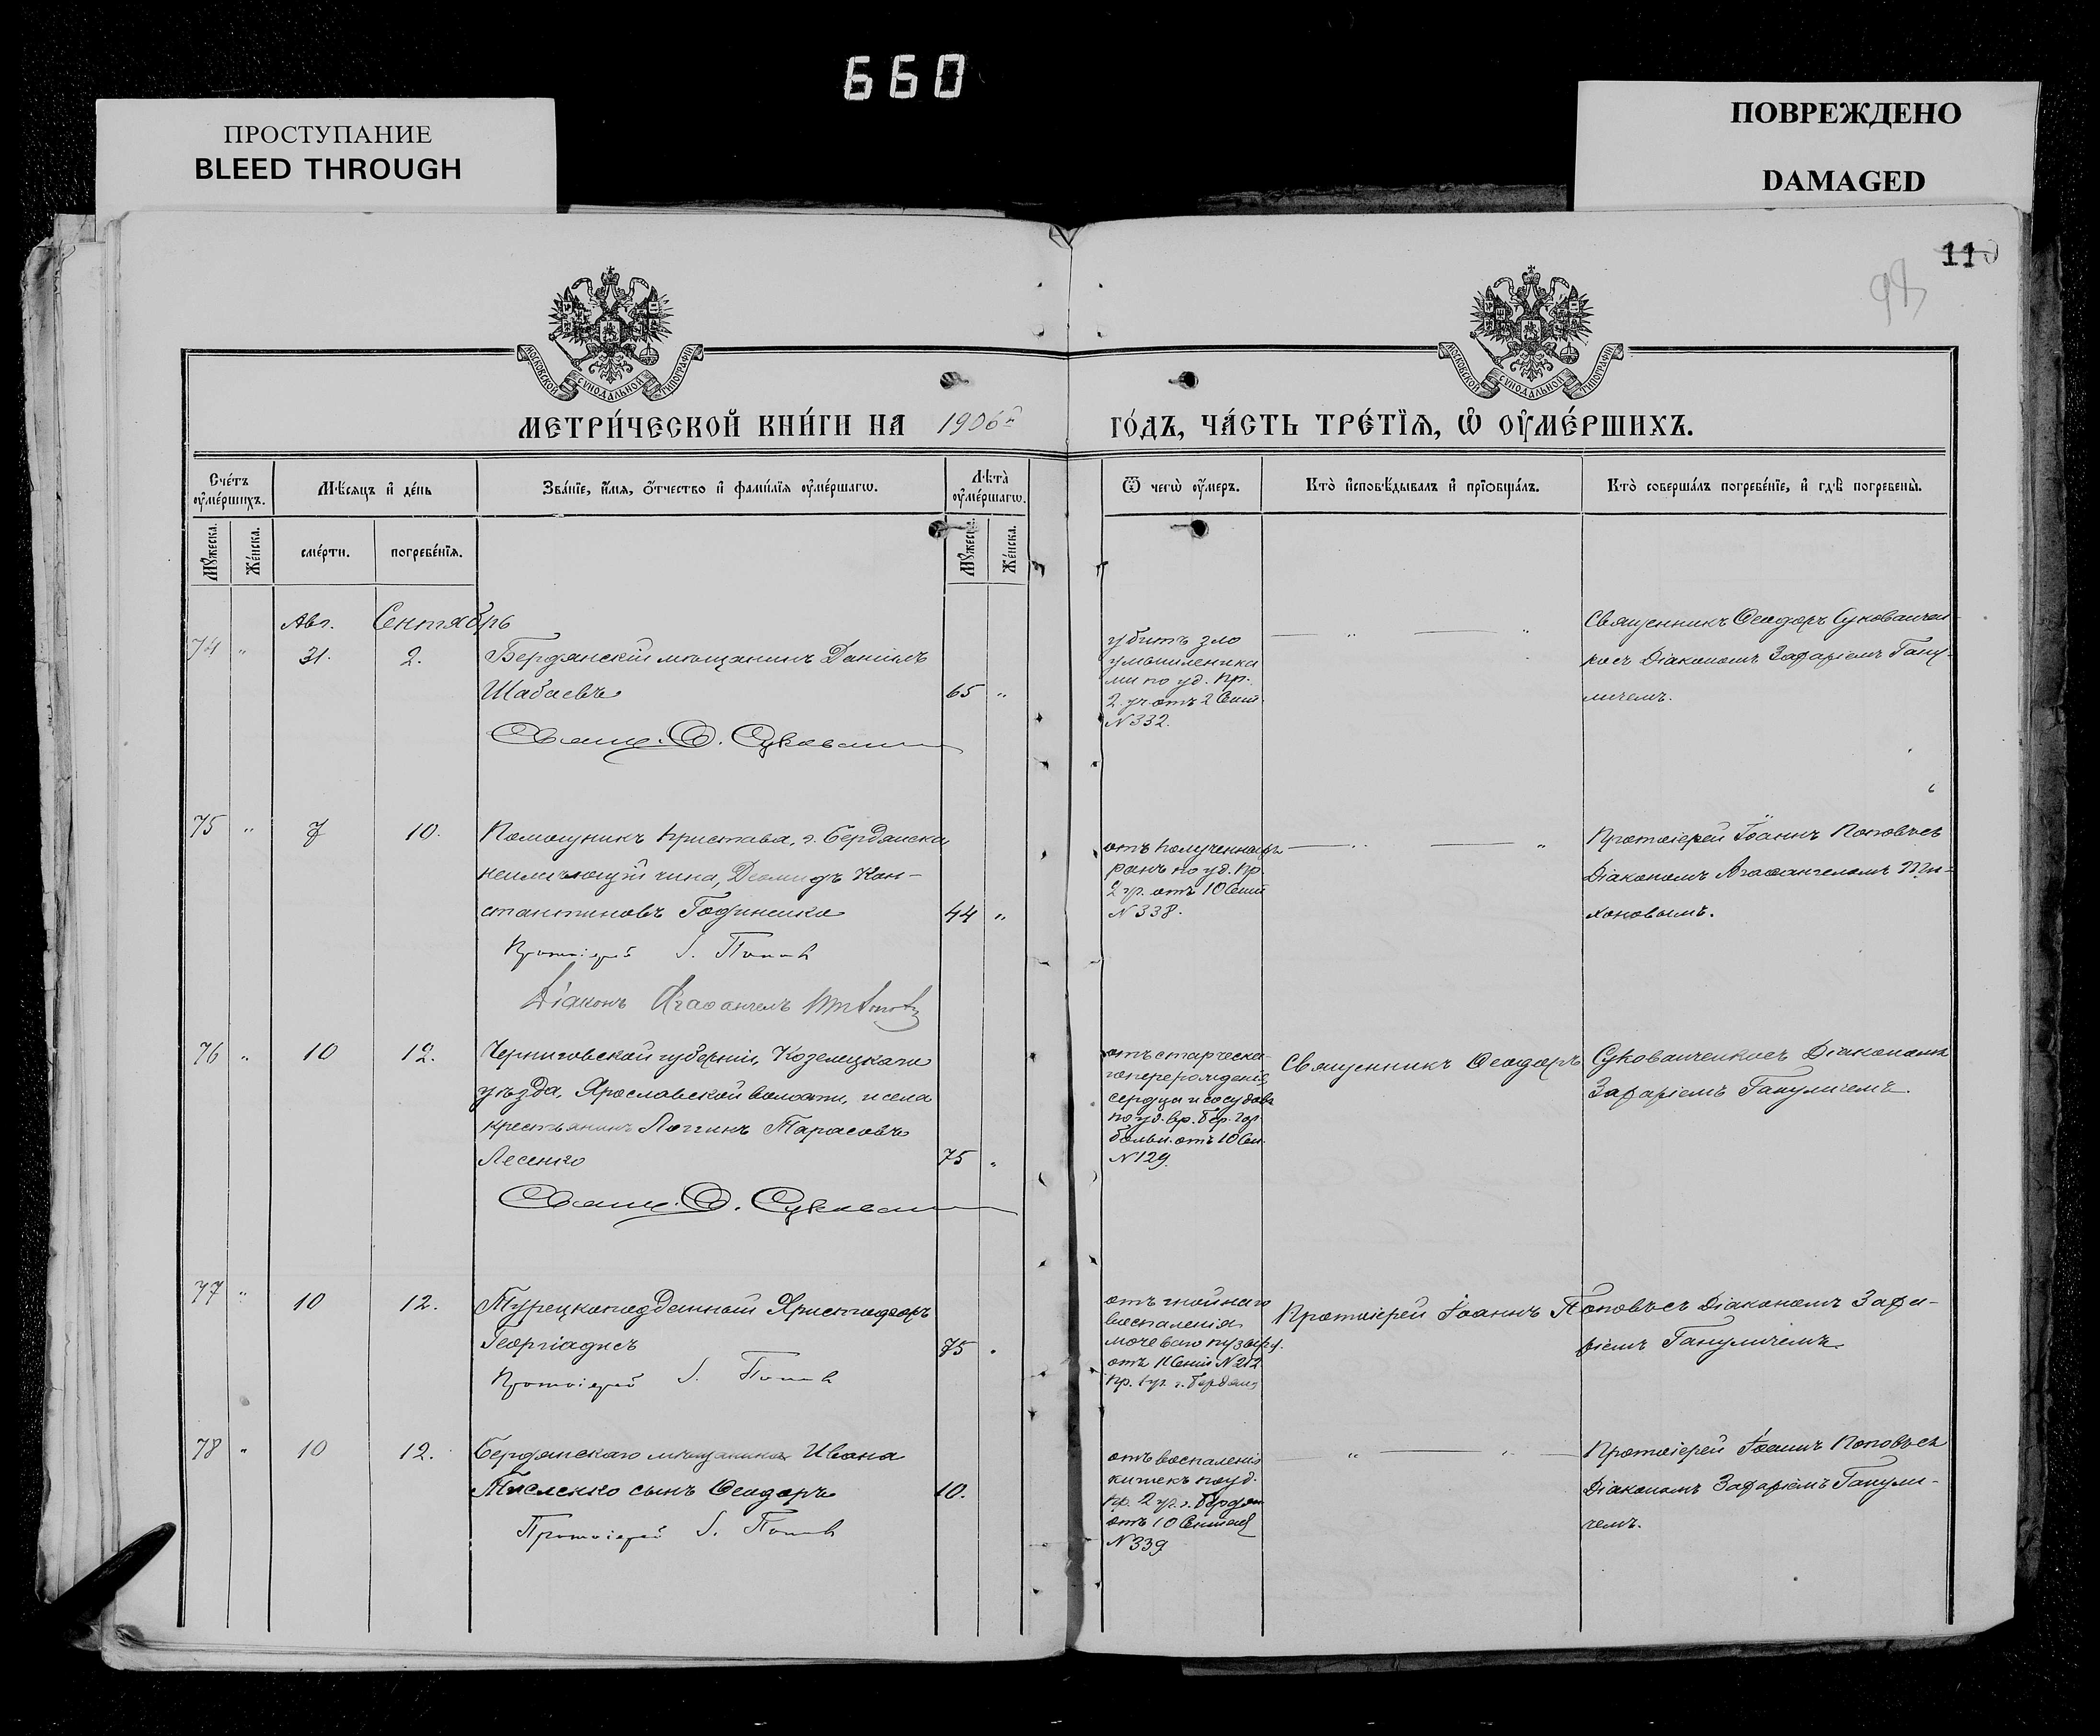 660
ПРОСТУПАНИЕ
BLEED THROUGH
ПОВРЕЖДЕНО
DAMAGED
110
98
МОСКОВСКОЙ СѴНОДАЛЬНОЙ ТИПОГРАФІИ
МОСКОВСКОЙ СѴНОДАЛЬНОЙ ТИПОГРАФІИ
МЕТРИ́ЧЕСКОЙ КНИ́ГИ НА 1906й
ГО́ДЪ, ЧА́СТЬ ТРЕ́ТЇѦ, Ѽ ОУ҆МЕ́РШИХЪ.
Сче́тъ оу҆ме́ршихъ.
Мѣ́сяцъ и҆ де́нь
Зва́нїе, и҆́мѧ, ѻ҆́тчество и҆ фами́лїѧ оу҆ме́ршагѡ.
Лѣ̀та оу҆ме́ршагѡ.
Ѿ чегѡ̀ оу҆́меръ.
Кто̀ и҆сповѣ́дывалъ и҆ прїѡбща́лъ.
Кто̀ соверша́лъ погребе́нїе, и҆ гдѣ̀ погребены̀.
Мꙋ́жеска.
Же́нска.
сме́рти.
погребе́нїѧ.
Мꙋ́жеска.
Же́нска.
Авг. Сентябрь
74 " 31. 2. Бердянскій мѣщанинъ Даніилъ
Шабаевъ 65 "
Свящ. Ѳ. Сукован
убитъ зло
умышленника
ми по уд. пр.
2 уч отъ 2 Сент.
N 332.
Священникъ Ѳеодоръ Сукованчен
косъ Діакономъ Захаріемъ Гану-
личемъ.
75 " 7 10. Помощникъ Пристава, г. Бердянска,
неимѣющій чина, Діомидъ Кон-
стантиновъ Годиненко 44 "
Протоіерей І. Попов
Діаконъ Агаѳангелъ
отъ полученныхъ
ранъ по уд. пр.
2 уч. отъ 10 Сент
N 338.
Протоіерей Іоаннъ Поповъ съ
Діакономъ Агаѳангеломъ Ти-
хоновымъ.
76 " 10 12. Черниговской губерніи, Козелецкаго
уѣзда, Ярославской волости, и села
крестьянинъ Логгинъ Тарасовъ
Лесенко 75 "
Свящ. Ѳ. Сукован
отъ старческа-
го перерожденія
сердца и сосудовъ
по уд. вр. Бер. гор.
больн. отъ 10 Сен.
N 129.
Священникъ Ѳеодоръ Сукованченкосъ Діакономъ
Захаріемъ Ганулічемъ.
77 " 10 12. Турецкоподданный Христофоръ
Георгіадисъ 75 "
Протоіерей І. Попов
отъ гнойнаго
воспаленія
мочеваго пузыря.
отъ 11 Сент N 212
Пр. 1 уч. г. Бердян
Протоіерей Іоаннъ Поповъ съ Діакономъ Заха-
ріемъ Ганулічемъ.
78 " 10 12. Бердянскаго мѣщанина Ивана
сынъ Ѳеодоръ 10.
Протоіерей І. Попов
отъ воспаленія
кишекъ по уд.
пр. 2 уч. г. Бердян
отъ 10 Сентяб
N 339
Протоіерей Іоаннъ Поповъ съ
Діакономъ Захаріемъ Ганули-
чемъ.